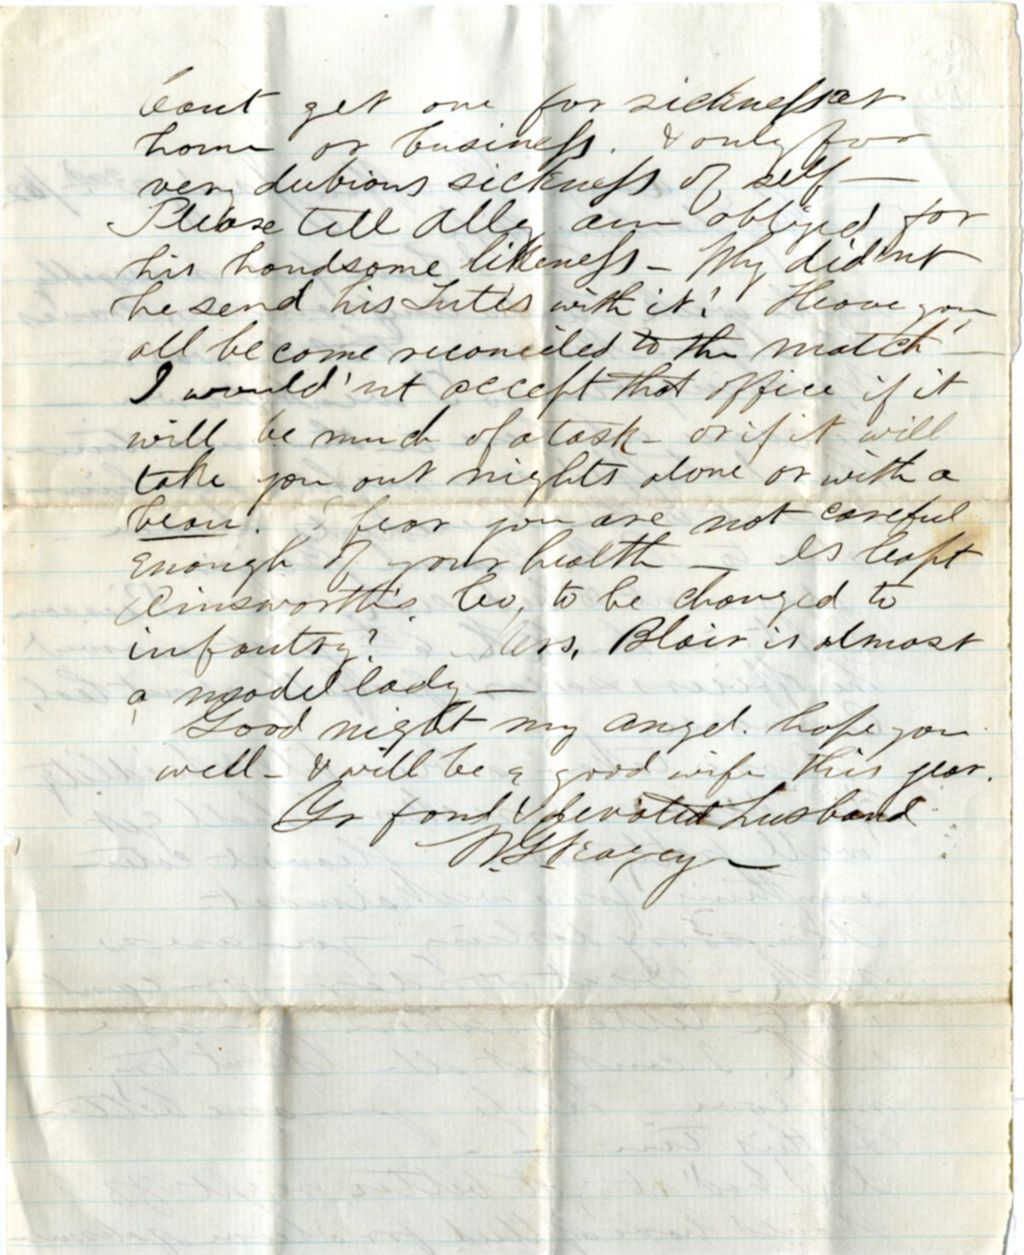 Cant get one for sickness at
home or business. & only for
very dubious sickness of self —
Please tell Ally am obliged for
his handsome likeness — Why did'nt
he send his with it! Have you
all become reconciled to the match —
I would'nt accept that office if it
will be much of a task — or if it will
take you out nights alone or with a
beau. I fear you are not careful
enough of your health — Is Capt
Ainsworth's Co, to be changed to
infantry? Mrs. Blair is almost
a model lady —
Good night my angel. hope you
well — & will be a good wife this year.
Yr fond & devoted husband